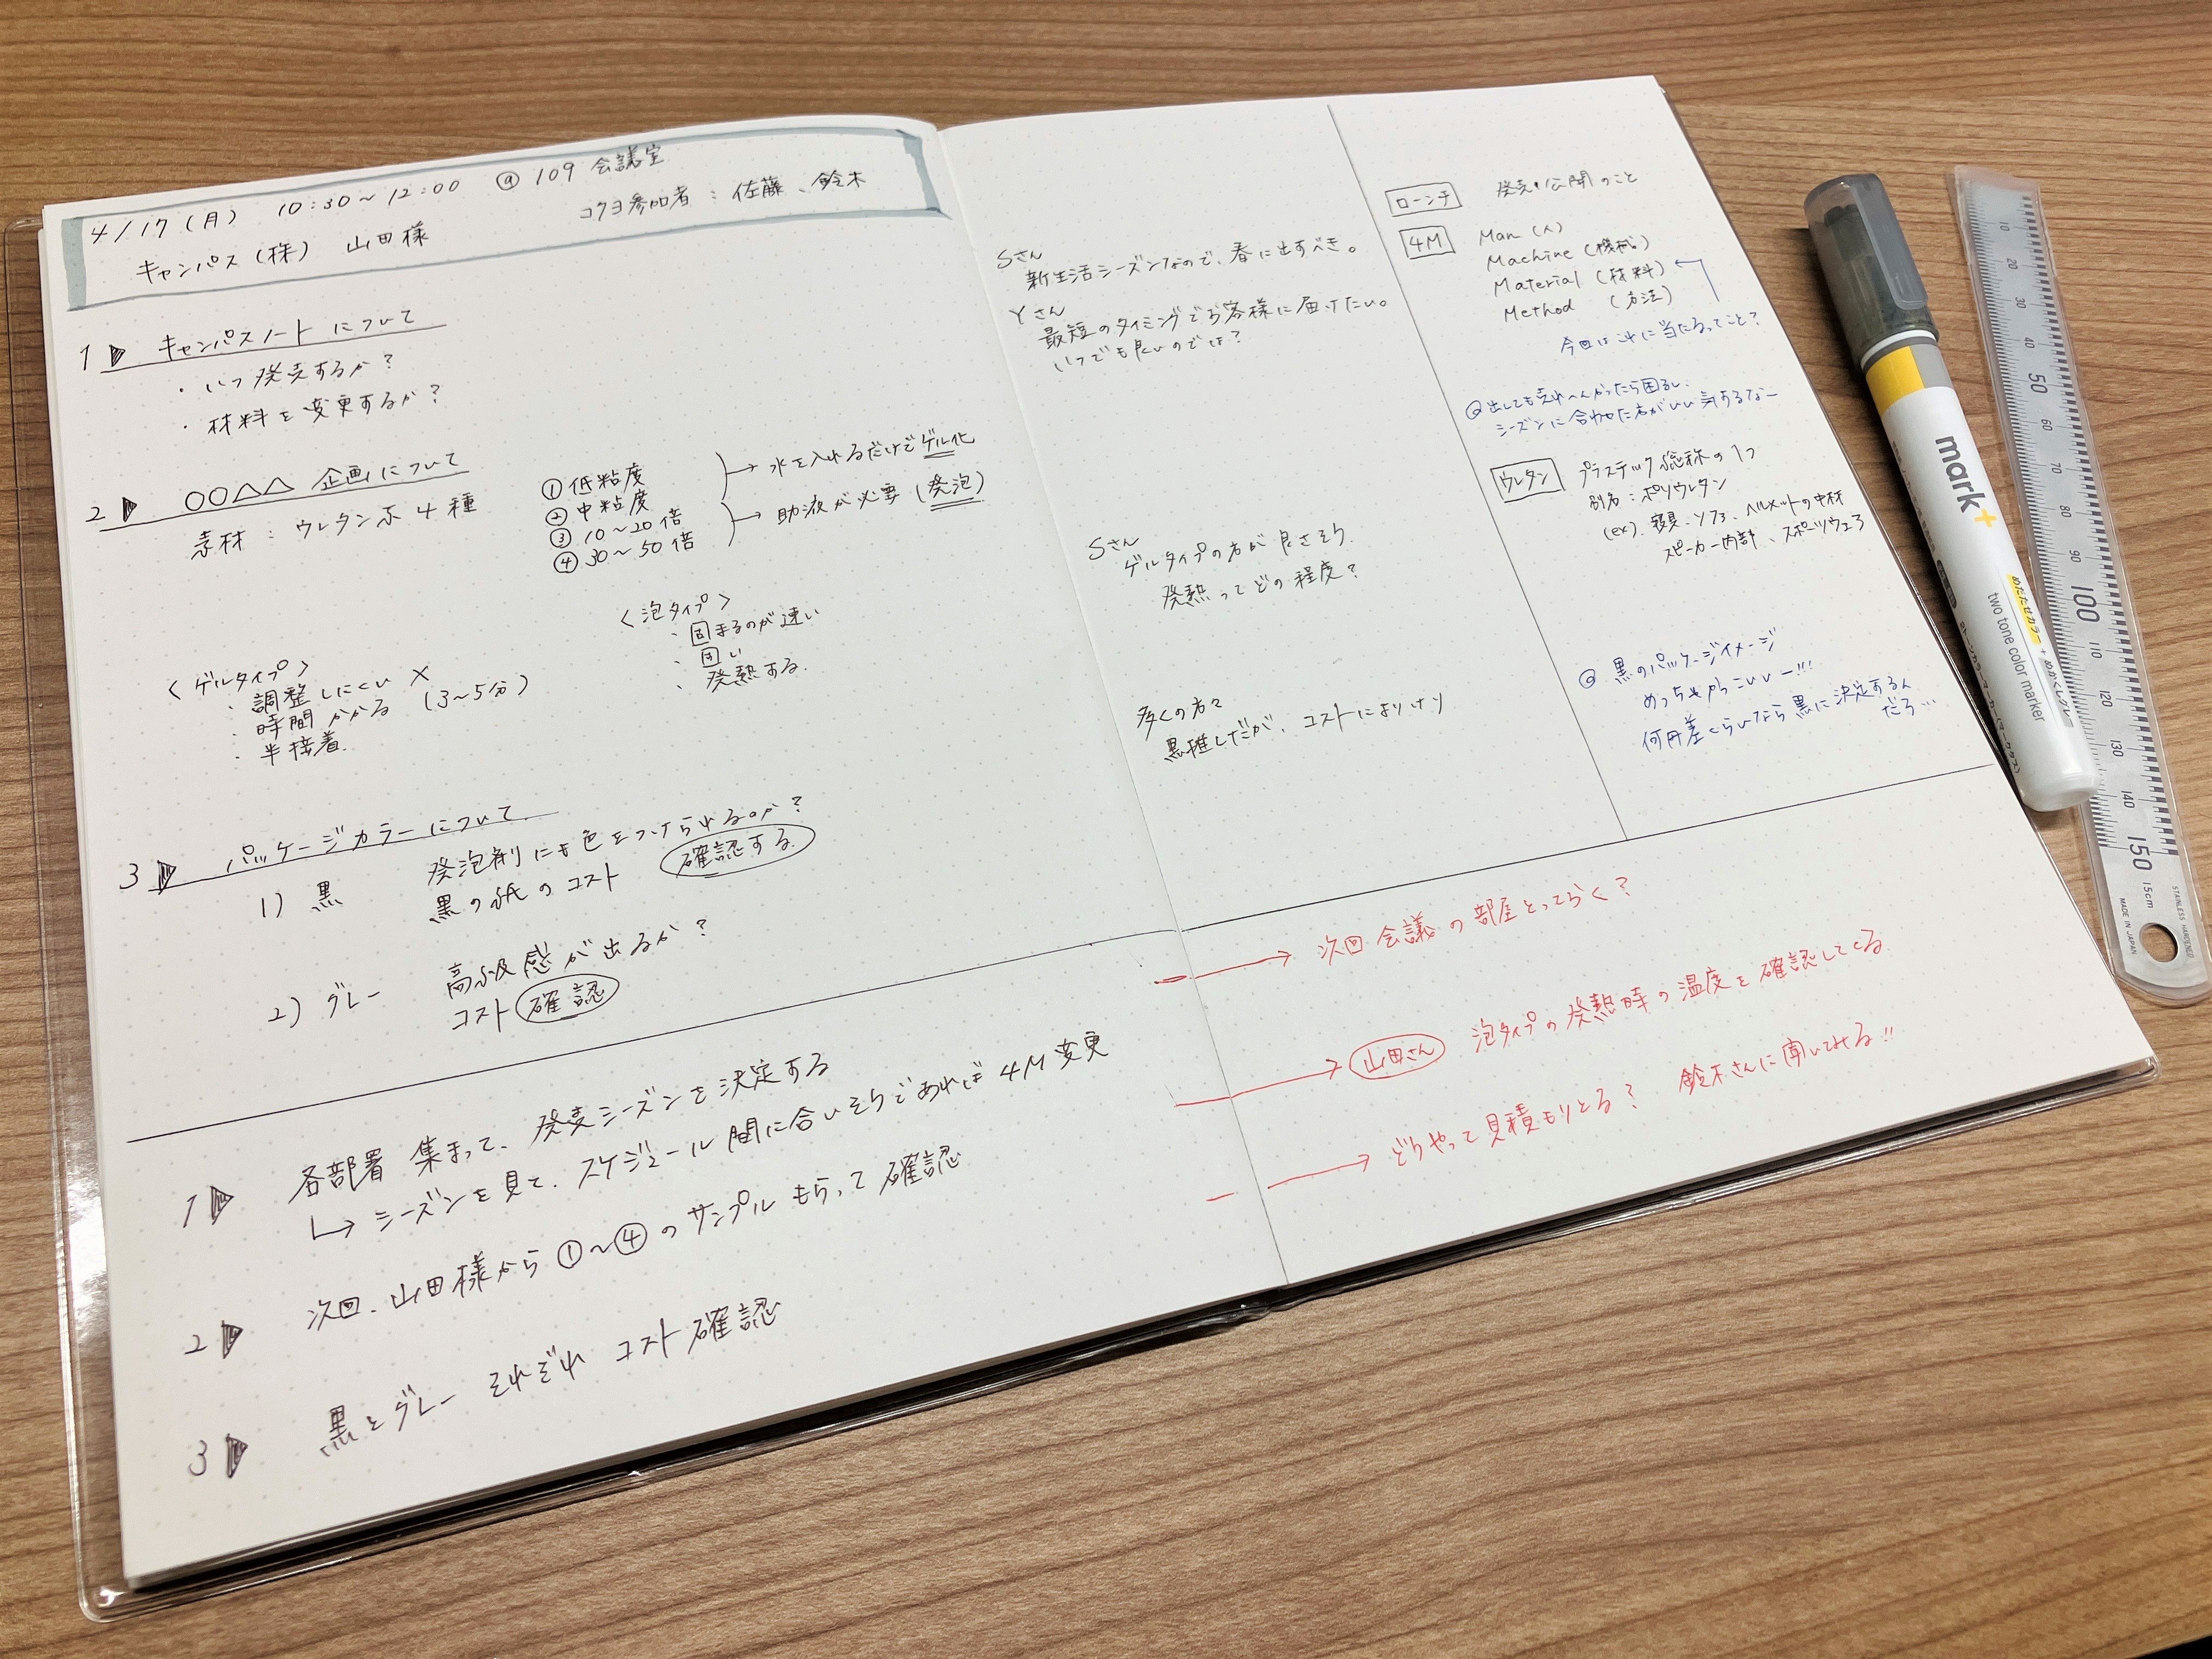 4/17(月) 10:30～12:00 @109 会議室
キャンパス(株) 山田様 コクヨ参加者：佐藤、鈴木
1 キャンパスノートについて
・いつ発売するか？
・材料を変更するか？
2 〇〇△△ 企画について
素材：ウレタン系4種
①低粘度
②中粘度
③10～20倍
④30～50倍
→水を入れるだけでゲル化
→助液が必要(発泡)
〈ゲルタイプ〉
・調整しにくい ×
・時間かかる (3～5分)
・半接着
〈泡タイプ〉
・固まるのが速い
・固い
・発熱する
3 パッケージカラーについて
1) 黒 発泡剤にも色をつけられるのか？
黒の紙のコスト 確認する
2) グレー 高級感が出るか？
コスト 確認
1 各部署 集まって、発売シーズンを決定する
→シーズンを見て、スケジュール間に合いそうであれば4M変更
2 次回、山田様から①～④のサンプルもらって確認
3 黒とグレー それぞれ コスト確認
Sさん
新生活シーズンなので、春に出すべき。
Yさん
最短のタイミングでお客様に届けたい。
いつでも良いのでは？
Sさん
ゲルタイプの方が良さそう
発熱ってどの程度？
多くの方々
黒推しだが、コストによりけり
ローンチ 発売・公開のこと
4M Man (人)
Machine (機械)
Material (材料)
Method (方法)
今回はこれに当たるってこと？
@出しても売れへんかったら困るし、
シーズンに合わせた方がいい気するなー
ウレタン プラスチック総称の1つ
別名：ポリウレタン
(ex). 寝具、ソファ、ヘルメットの中材
スピーカー内部、スポーツウェア
@黒のパッケージイメージ
めっちゃかっこいいー!!!
何円差くらいなら黒に決定するん
だろ…
→次回会議の部屋とっておく？
→山田さん 泡タイプの発熱時の温度を確認してくる
→どうやって見積もりとる？ 鈴木さんに聞いてみる!!
mark+
めだたせカラー + めかくしグレー
two tone color marker
10
20
30
40
50
60
70
80
90
100
110
120
130
140
150
15cm
STAINLESS HARDENED
MADE IN JAPAN